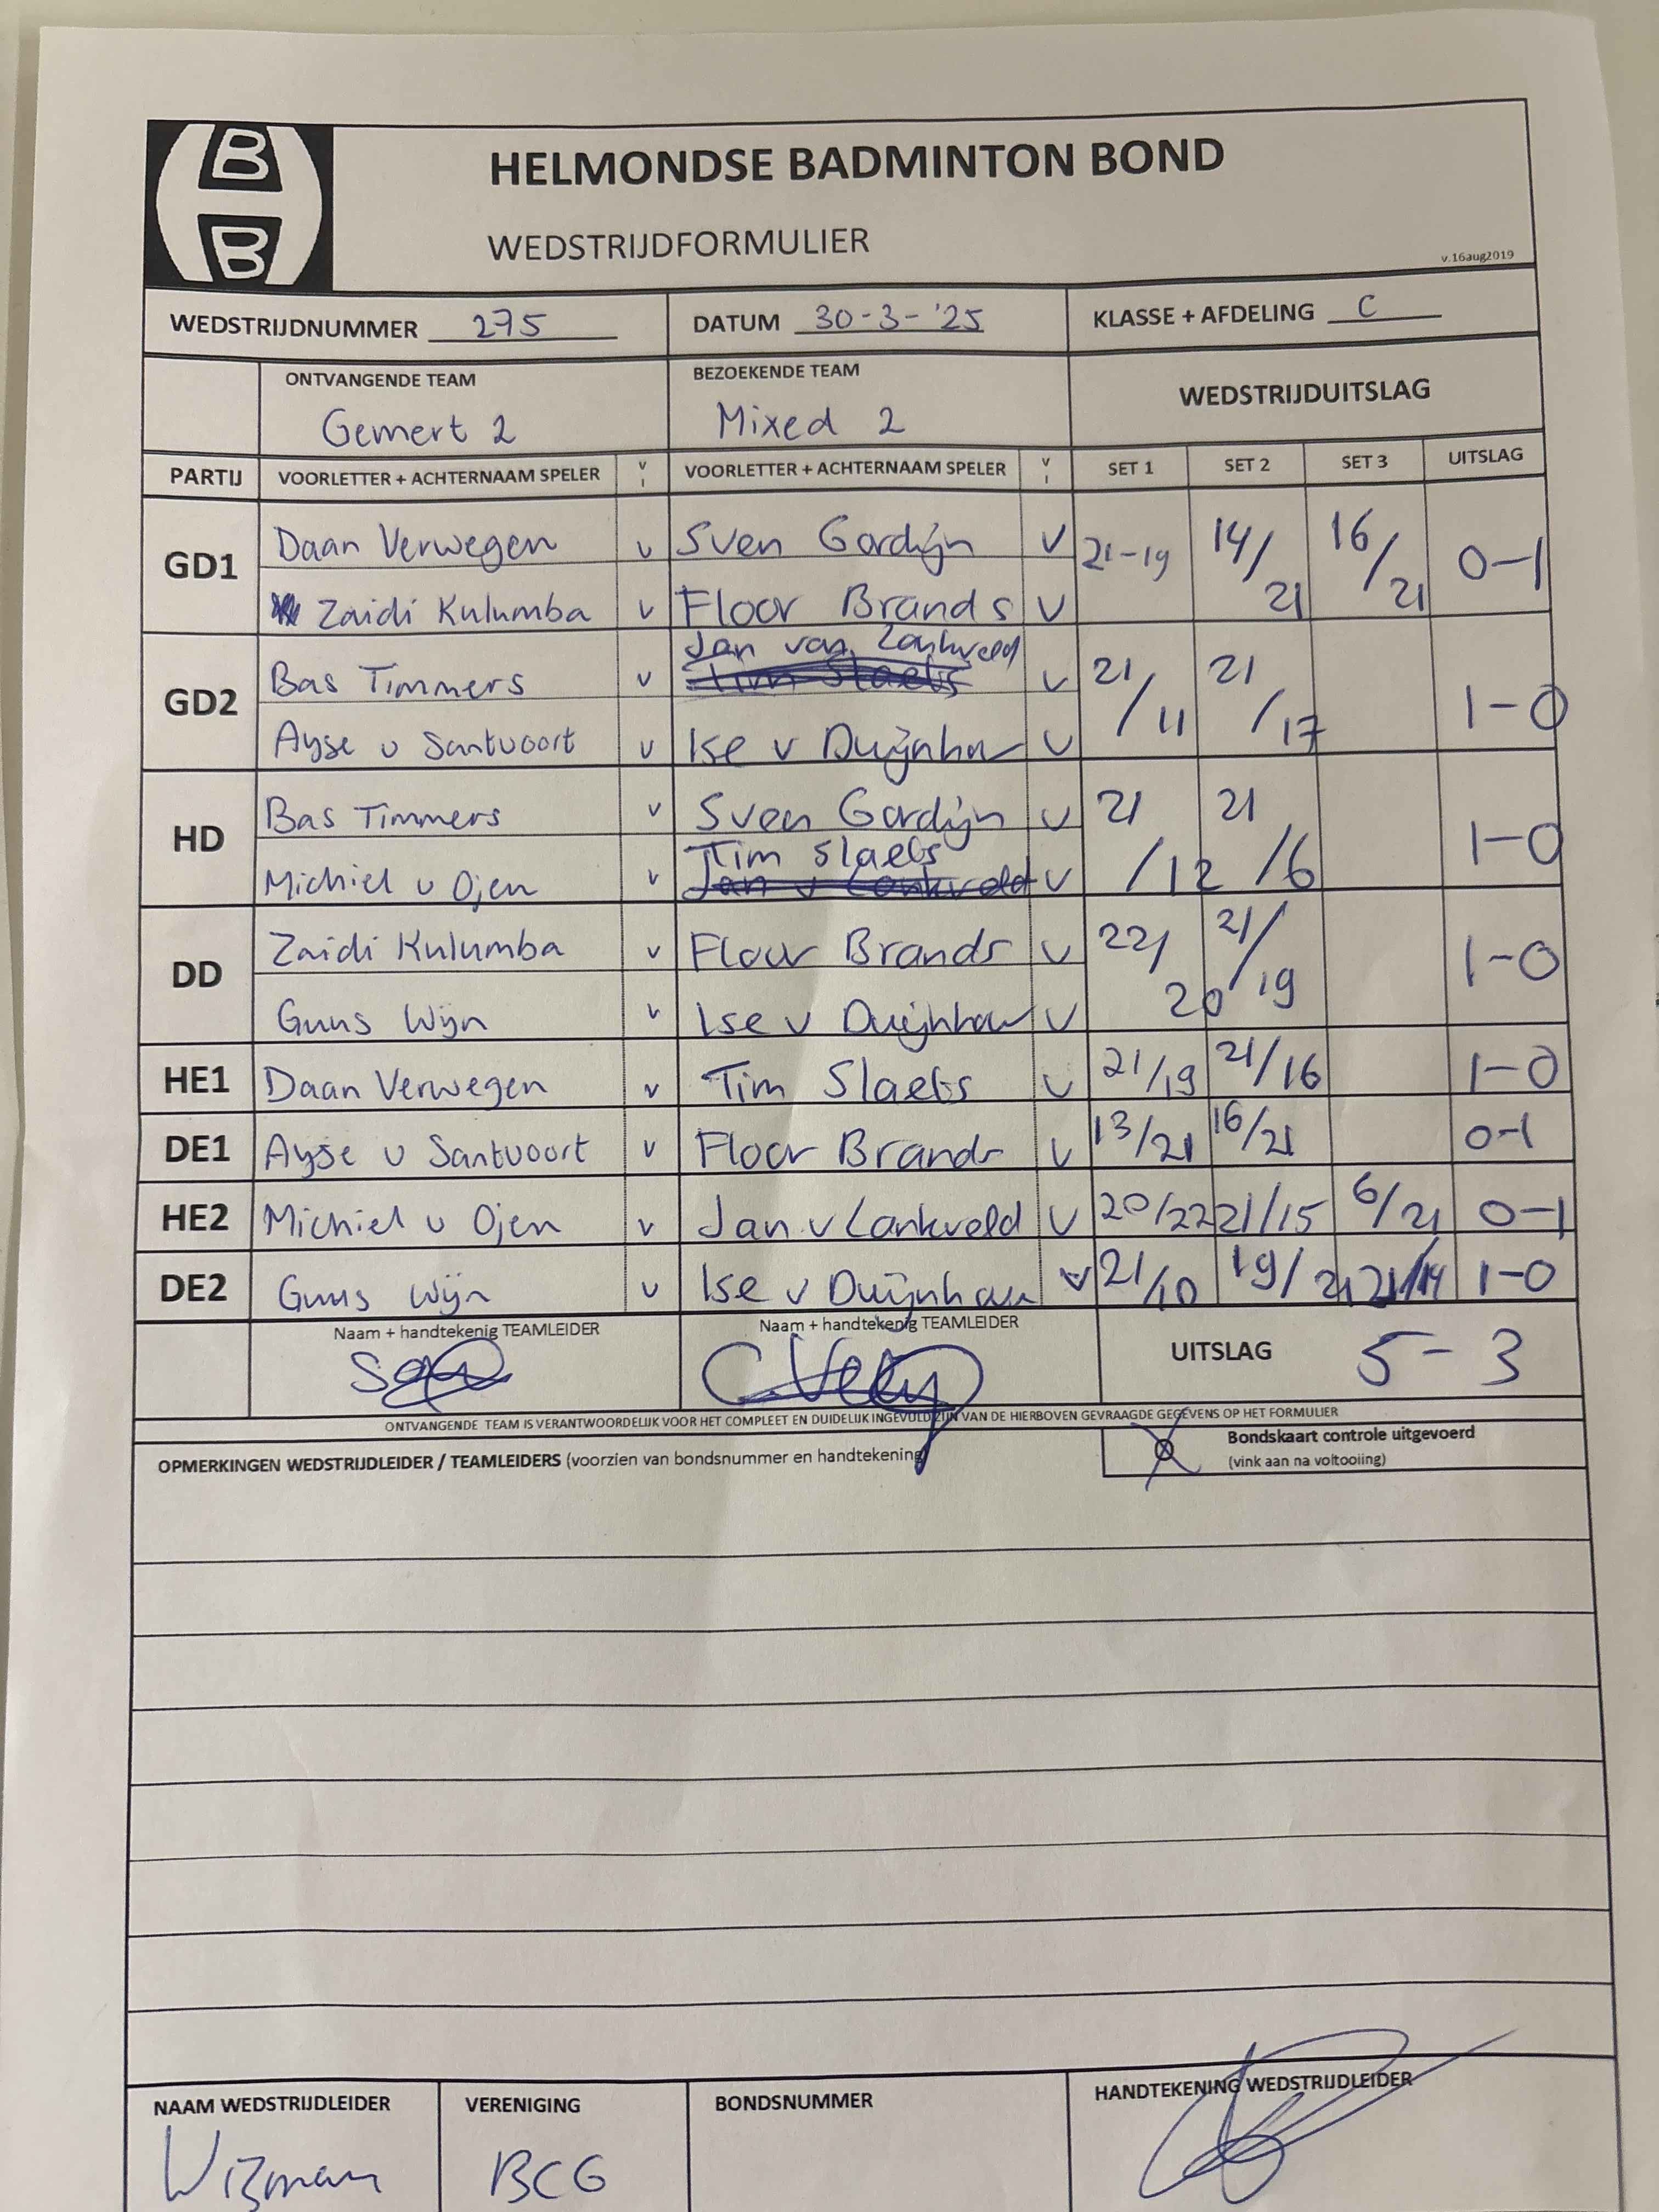 B
B
HELMONDSE BADMINTON BOND
WEDSTRIJDFORMULIER
v.16aug2019
WEDSTRIJDNUMMER 275 DATUM 30-3-'25 KLASSE + AFDELING C
ONTVANGENDE TEAM BEZOEKENDE TEAM WEDSTRIJDUITSLAG
Gemert 2 Mixed 2
PARTIJ VOORLETTER + ACHTERNAAM SPELER V I VOORLETTER + ACHTERNAAM SPELER V I SET 1 SET 2 SET 3 UITSLAG
GD1 Daan Verwegen v Sven Gordijn v 21-19 14/21 16/21 0-1
Zaidi Kulumba v Floor Brands v
Jan van Lankveld
GD2 Bas Timmers v Tim Slaets v 21/11 21/17 1-0
Ayse v Santvoort v Ise v Duijnhov v
HD Bas Timmers v Sven Gordijn v 21/12 21/6 1-0
Tim Slaets
Michiel v Ojen v Jan v Lankveld v
DD Zaidi Kulumba v Floor Brands v 22/20 21/19 1-0
Guus Wijn v Ise v Duijnhov v
HE1 Daan Verwegen v Tim Slaets v 21/19 21/16 1-0
DE1 Ayse v Santvoort v Floor Brands v 13/21 16/21 0-1
HE2 Michiel v Ojen v Jan v Lankveld v 20/22 21/15 6/21 0-1
DE2 Guus Wijn v Ise v Duijnhoven v 21/10 19/21 21/14 1-0
Naam + handtekenig TEAMLEIDER Naam + handtekenig TEAMLEIDER UITSLAG 5-3
ONTVANGENDE TEAM IS VERANTWOORDELIJK VOOR HET COMPLEET EN DUIDELIJK INGEVULD ZIJN VAN DE HIERBOVEN GEVRAAGDE GEGEVENS OP HET FORMULIER
OPMERKINGEN WEDSTRIJDLEIDER / TEAMLEIDERS (voorzien van bondsnummer en handtekening)
Bondskaart controle uitgevoerd
(vink aan na voltooiing)
NAAM WEDSTRIJDLEIDER VERENIGING BONDSNUMMER HANDTEKENING WEDSTRIJDLEIDER
Wizman BCG